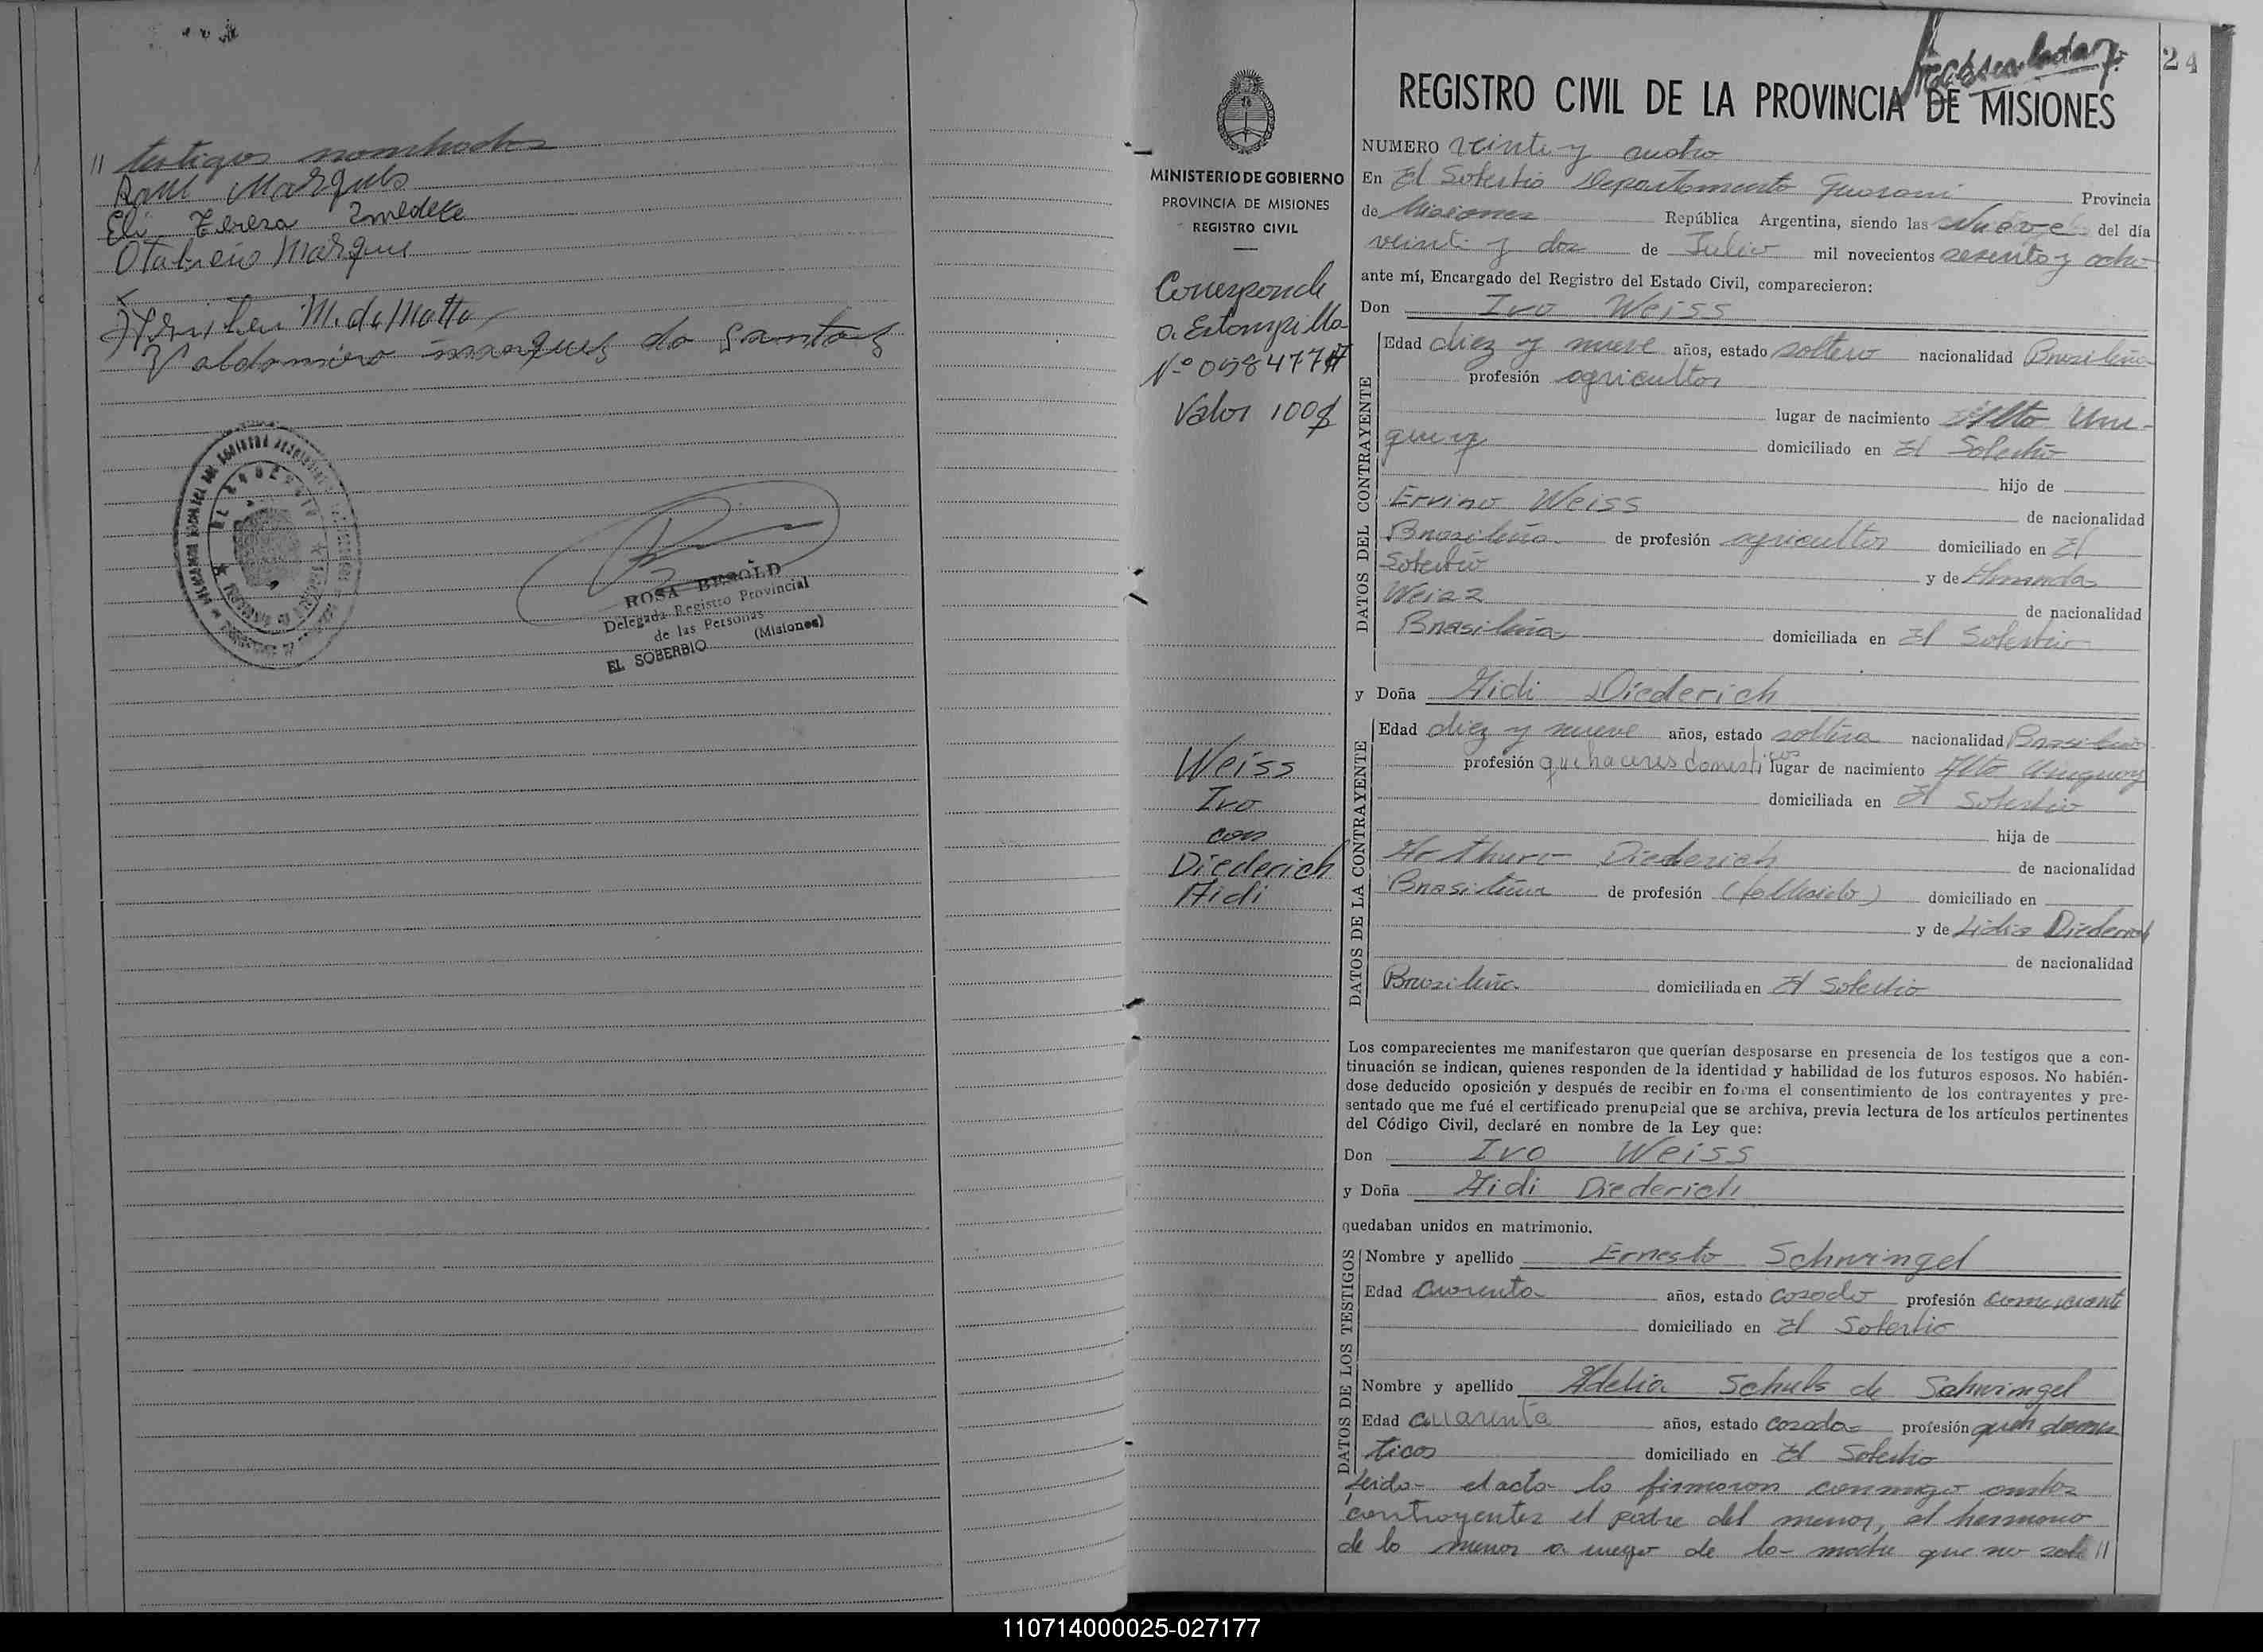 // testigos nombrados
Raul Marques
Eli Tereza
Otabicio Marques
M. da Motta
Valdomiro marques do Santos
EL SOBERBIO
ROSA BESOLD
Delegada Registro Provincial
de las Personas
EL SOBERBIO (Misiones)
24
REGISTRO CIVIL DE LA PROVINCIA DE MISIONES
MINISTERIO DE GOBIERNO
PROVINCIA DE MISIONES
REGISTRO CIVIL
Corresponde
a Estampilla
Nº 0584777
Valor 100$
Weiss
Ivo
con
Diederich
Aidi
NUMERO veinte y cuatro
En El Soberbio Departamento Guarani Provincia
de Misiones República Argentina, siendo las nueve del día
veinte y dos de Julio mil novecientos sesenta y ocho
ante mí, Encargado del Registro del Estado Civil, comparecieron:
Don Ivo Weiss
DATOS DEL CONTRAYENTE
Edad diez y nueve años, estado soltero nacionalidad Brasileña
profesión agricultor
lugar de nacimiento Alto Uru-
guay domiciliado en El Soberbio
hijo de
Ervino Weiss de nacionalidad
Brasileña de profesión agricultor domiciliado en El
Soberbio y de Armanda
Weiss de nacionalidad
Brasileña domiciliada en El Soberbio
y Doña Aidi Diederich
DATOS DE LA CONTRAYENTE
Edad diez y nueve años, estado soltera nacionalidad Brasileña
profesión quehaceres domesticos lugar de nacimiento Alto Uruguay
domiciliada en El Soberbio
hija de
Arthuro Diederich de nacionalidad
Brasileña de profesión (fallecido) domiciliado en
y de Lidia Diederich
de nacionalidad
Brasileña domiciliada en El Soberbio
Los comparecientes me manifestaron que querían desposarse en presencia de los testigos que a con-
tinuación se indican, quienes responden de la identidad y habilidad de los futuros esposos. No habién-
dose deducido oposición y después de recibir en forma el consentimiento de los contrayentes y pre-
sentado que me fué el certificado prenupcial que se archiva, previa lectura de los artículos pertinentes
del Código Civil, declaré en nombre de la Ley que:
Don Ivo Weiss
y Doña Aidi Diederich
quedaban unidos en matrimonio.
DATOS DE LOS TESTIGOS
Nombre y apellido Ernesto Schwingel
Edad cuarenta años, estado casado profesión comerciante
domiciliado en El Soberbio
Nombre y apellido Adelia Schuls de Schwingel
Edad cuarenta años, estado casada profesión queh domes
ticos domiciliado en El Soberbio
Leida el acta la firmaron conmigo ambos
contrayentes el padre del menor, el hermano
de la menor a ruego de la madre que no sabe //
110714000025-027177